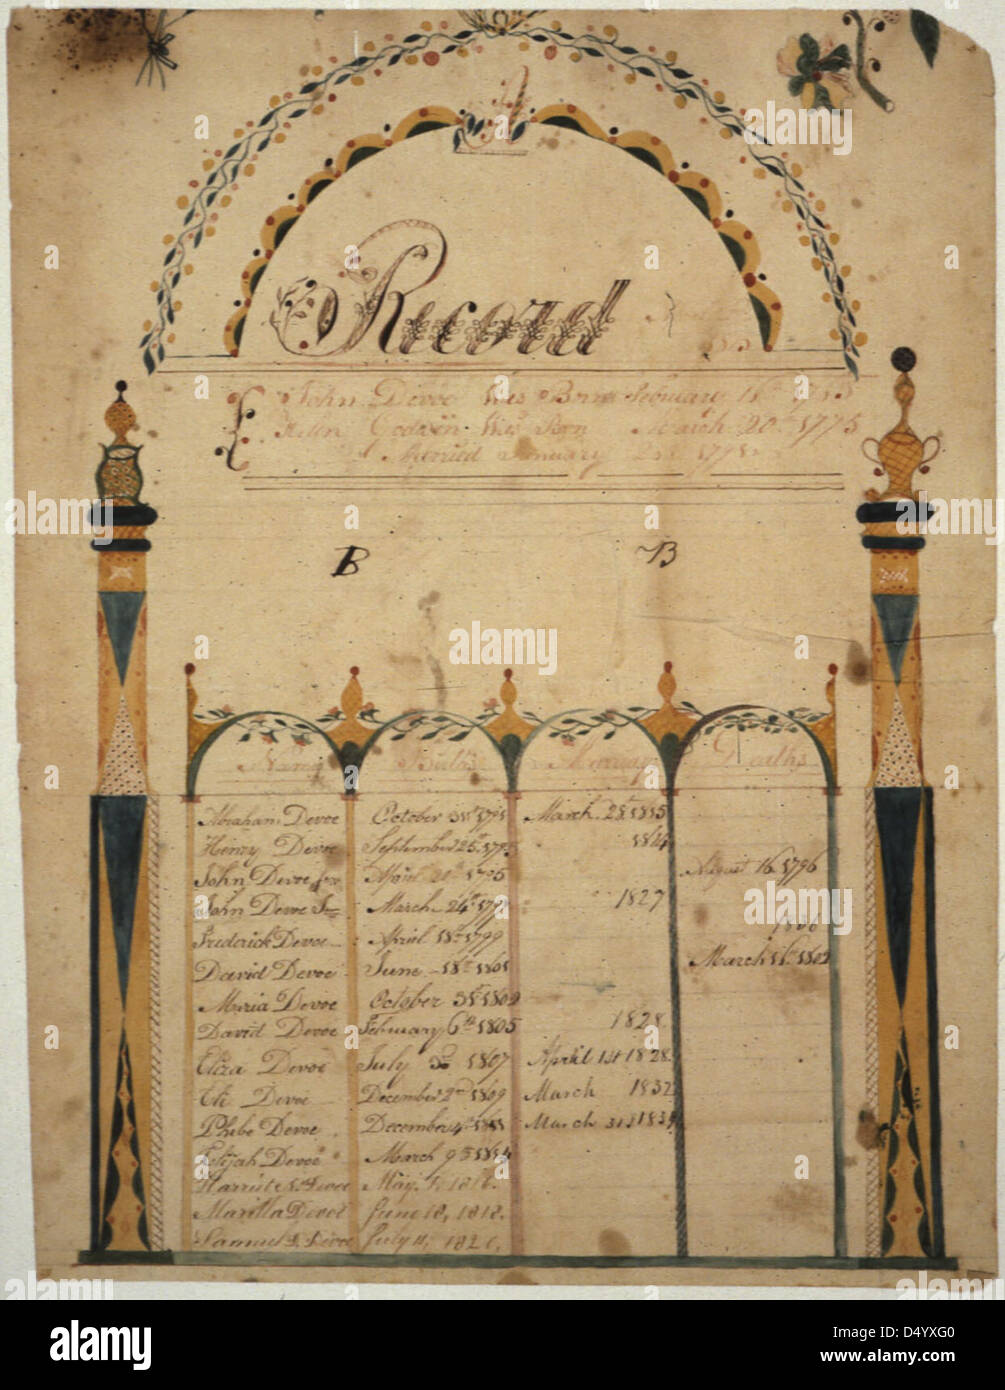 A
Record
John Devoe Was Born February 16th
Was Born March 20th 1775
Married January
B B
Names Births Marriages Deaths
Abraham Devoe October 31st 1791 March 28th 1815
Henry Devoe September 25th 1814
John Devoe August 16 1796
John Devoe March 24th 1827
1806
Frederick Devoe April 18th 1799
David Devoe June 18th 1801 March 16th 1802
Maria Devoe October 31st 1802
David Devoe February 6th 1805 1828
Eliza Devoe July 30 1807 April 1st 1828
Eli Devoe December 2nd 1809 March 1832
Phebe Devoe December 4th 1811 March 31st
Elijah Devoe March 9th 1814
Devoe May 1, 1816.
Marilla Devoe June 18, 1818.
Samuel Devoe July 11,
alamy
alamy
Image ID: D4YXG0
www.alamy.com